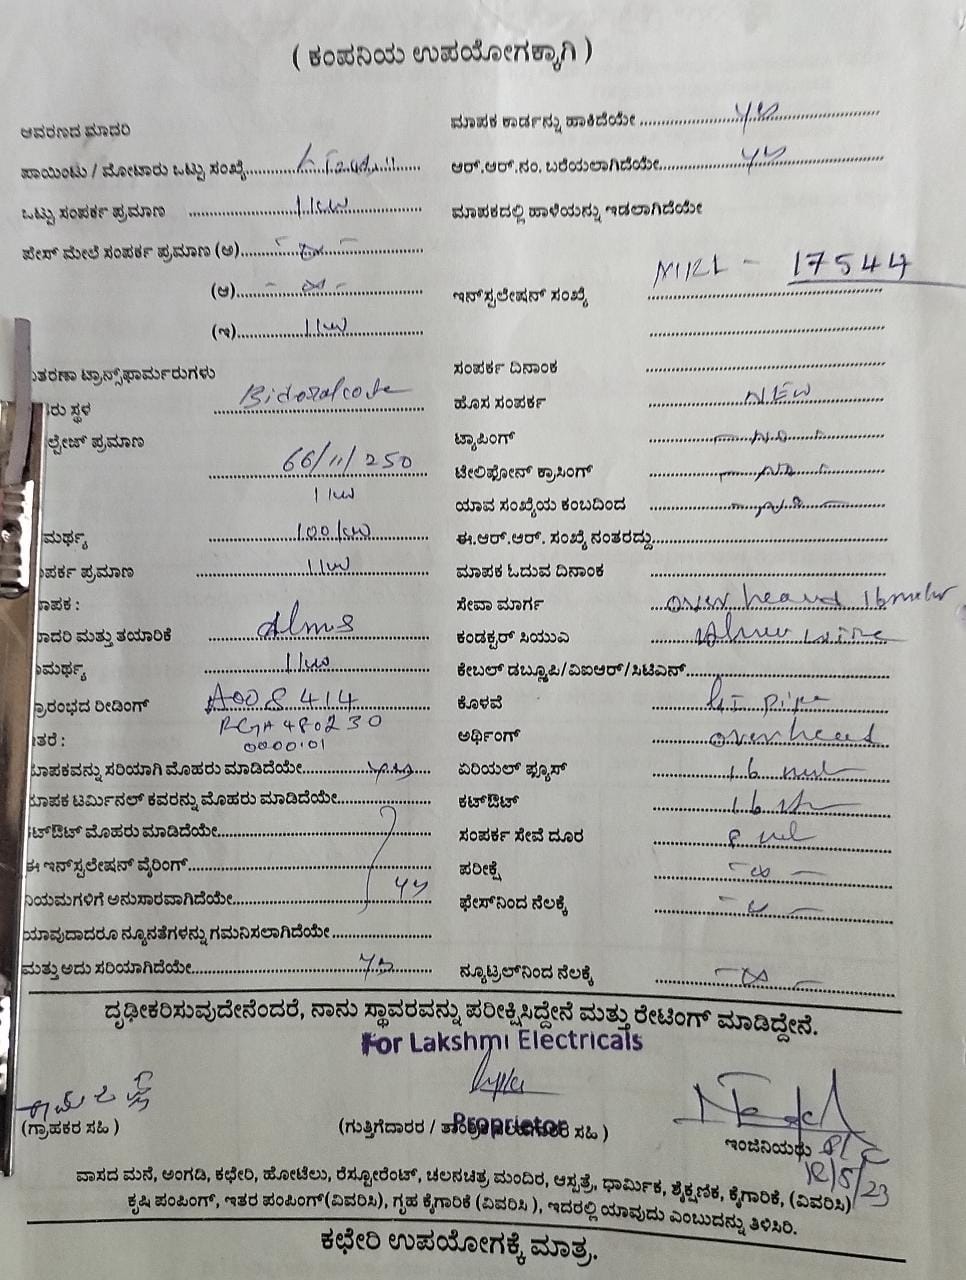 ( ಕಂಪನಿಯ ಉಪಯೋಗಕ್ಕಾಗಿ )
ಆವರಣದ ಮಾದರಿ
ಪಾಯಿಂಟು / ಮೋಟಾರು ಒಟ್ಟು ಸಂಖ್ಯೆ
ಒಟ್ಟು ಸಂಪರ್ಕ ಪ್ರಮಾಣ 1 kw
ಪೇಸ್ ಮೇಲೆ ಸಂಪರ್ಕ ಪ್ರಮಾಣ (ಅ)
(ಆ)
(ಇ) 1 kw
ತರಣಾ ಟ್ರಾನ್ಸ್‌ಫಾರ್ಮರುಗಳು
ರು ಸ್ಥಳ Bidaralcote
ಲ್ಟೇಜ್ ಪ್ರಮಾಣ 66/11/250
1 kw
ಮರ್ಥ್ಯ 100 kw
ಪರ್ಕ ಪ್ರಮಾಣ 1 kw
ಾಪಕ :
ಾದರಿ ಮತ್ತು ತಯಾರಿಕೆ
ಮರ್ಥ್ಯ 1 kw
್ರಾರಂಭದ ರೀಡಿಂಗ್ A008414
RGA480230
0000.01
ತರೆ :
ಮಾಪಕವನ್ನು ಸರಿಯಾಗಿ ಮೊಹರು ಮಾಡಿದೆಯೇ yes
ಮಾಪಕ ಟರ್ಮಿನಲ್ ಕವರನ್ನು ಮೊಹರು ಮಾಡಿದೆಯೇ
ಕಟ್‌ಔಟ್ ಮೊಹರು ಮಾಡಿದೆಯೇ
ಈ ಇನ್‌ಸ್ಟಲೇಷನ್ ವೈರಿಂಗ್
ನಿಯಮಗಳಿಗೆ ಅನುಸಾರವಾಗಿದೆಯೇ yes
ಯಾವುದಾದರೂ ನ್ಯೂನತೆಗಳನ್ನು ಗಮನಿಸಲಾಗಿದೆಯೇ
ಮತ್ತು ಅದು ಸರಿಯಾಗಿದೆಯೇ yes
ಮಾಪಕ ಕಾರ್ಡನ್ನು ಹಾಕಿದೆಯೇ yes
ಆರ್.ಆರ್.ನಂ. ಬರೆಯಲಾಗಿದೆಯೇ yes
ಮಾಪಕದಲ್ಲಿ ಹಾಳೆಯನ್ನು ಇಡಲಾಗಿದೆಯೇ
ಇನ್‌ಸ್ಟಲೇಷನ್ ಸಂಖ್ಯೆ - 17544
ಸಂಪರ್ಕ ದಿನಾಂಕ
ಹೊಸ ಸಂಪರ್ಕ NEW
ಟ್ಯಾಪಿಂಗ್ - No -
ಟೇಲಿಫೋನ್ ಕ್ರಾಸಿಂಗ್ - No -
ಯಾವ ಸಂಖ್ಯೆಯ ಕಂಬದಿಂದ
ಈ.ಆರ್.ಆರ್. ಸಂಖ್ಯೆ ನಂತರದ್ದು
ಮಾಪಕ ಓದುವ ದಿನಾಂಕ
ಸೇವಾ ಮಾರ್ಗ over heaud 16 meter
ಕಂಡಕ್ಟರ್ ಸಿಯುಎ wire
ಕೇಬಲ್ ಡಬ್ಲೂಪಿ/ವಿಐಆರ್/ಸಿಟಿಎನ್
ಕೊಳವೆ GI pipe
ಅರ್ಥಿಂಗ್ over head
ಏರಿಯಲ್ ಫ್ಯೂಸ್
ಕಟ್‌ಔಟ್
ಸಂಪರ್ಕ ಸೇವೆ ದೂರ
ಪರೀಕ್ಷೆ
ಫೇಸ್‌ನಿಂದ ನೆಲಕ್ಕೆ
ನ್ಯೂಟ್ರಲ್‌ನಿಂದ ನೆಲಕ್ಕೆ
ದೃಢೀಕರಿಸುವುದೇನೆಂದರೆ, ನಾನು ಸ್ಥಾವರವನ್ನು ಪರೀಕ್ಷಿಸಿದ್ದೇನೆ ಮತ್ತು ರೇಟಿಂಗ್ ಮಾಡಿದ್ದೇನೆ.
For Lakshmi Electricals
Proprietor
(ಗ್ರಾಹಕರ ಸಹಿ ) (ಗುತ್ತಿಗೆದಾರರ / ಸಹಿ ) ಇಂಜಿನಿಯರು
12/5/23
ವಾಸದ ಮನೆ, ಅಂಗಡಿ, ಕಛೇರಿ, ಹೋಟೆಲು, ರೆಸ್ಟೋರೆಂಟ್, ಚಲನಚಿತ್ರ ಮಂದಿರ, ಆಸ್ಪತ್ರೆ, ಧಾರ್ಮಿಕ, ಶೈಕ್ಷಣಿಕ, ಕೈಗಾರಿಕೆ, (ವಿವರಿಸಿ)
ಕೃಷಿ ಪಂಪಿಂಗ್, ಇತರ ಪಂಪಿಂಗ್(ವಿವರಿಸಿ), ಗೃಹ ಕೈಗಾರಿಕೆ (ವಿವರಿಸಿ ), ಇದರಲ್ಲಿ ಯಾವುದು ಎಂಬುದನ್ನು ತಿಳಿಸಿರಿ.
ಕಛೇರಿ ಉಪಯೋಗಕ್ಕೆ ಮಾತ್ರ.